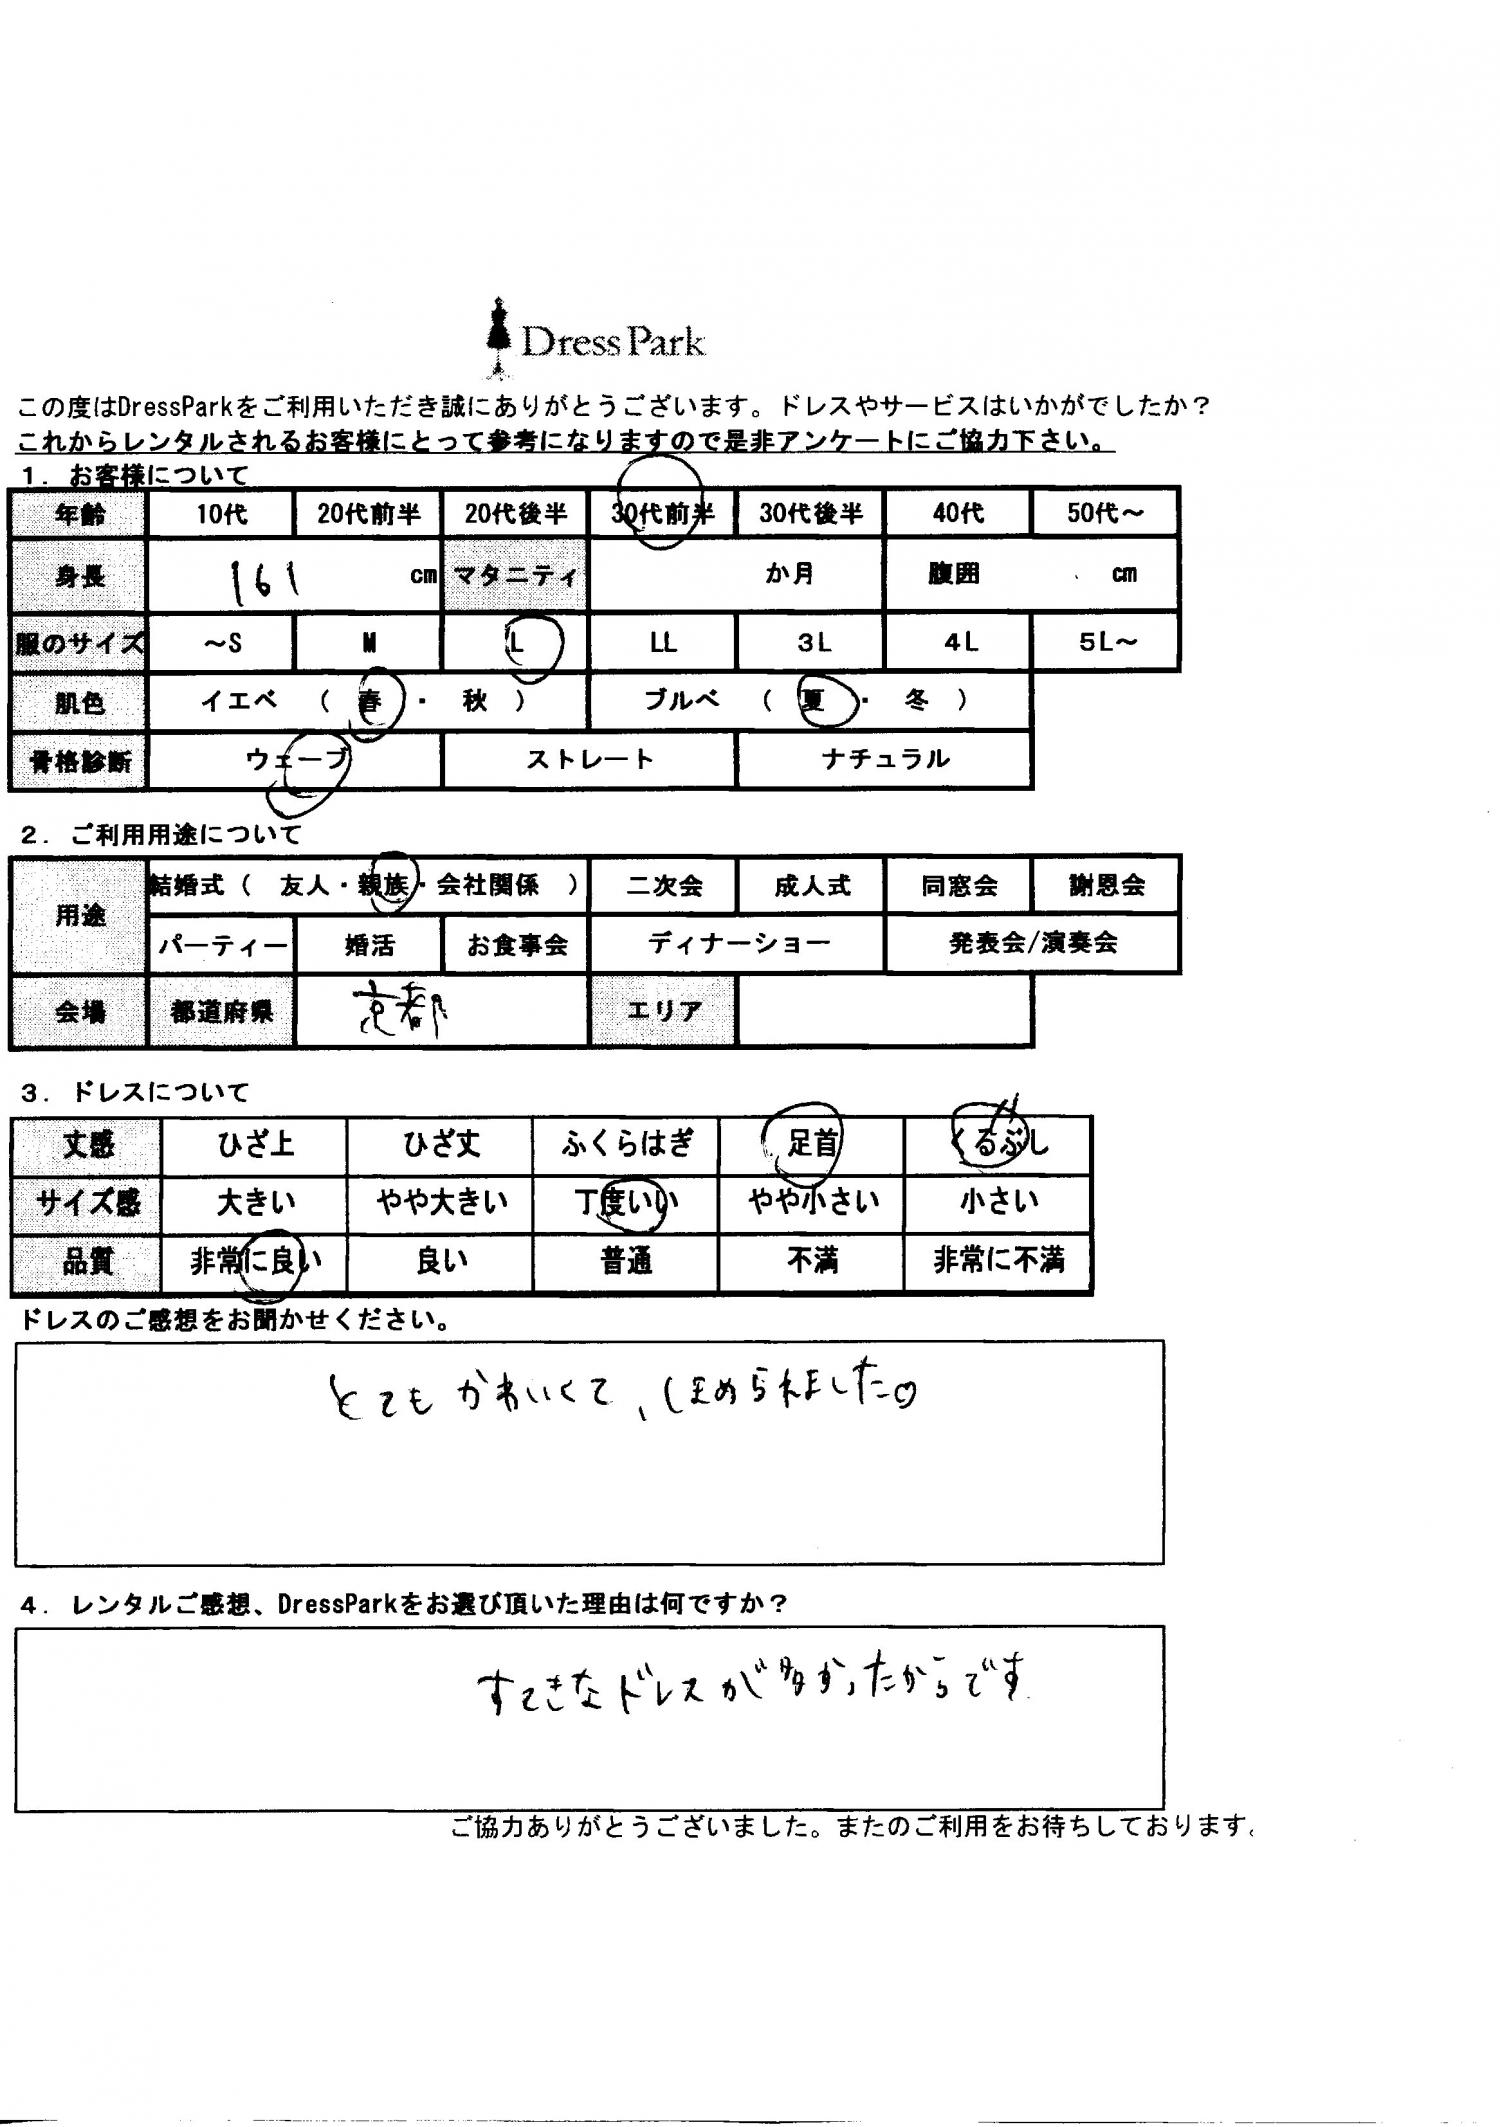 Dress Park
この度はDressParkをご利用いただき誠にありがとうございます。ドレスやサービスはいかがでしたか？
これからレンタルされるお客様にとって参考になりますので是非アンケートにご協力下さい。
１．お客様について
年齢 10代 20代前半 20代後半 30代前半 30代後半 40代 50代～
身長 161 cm マタニティ か月 腹囲 cm
服のサイズ ～S M L LL 3L 4L 5L～
肌色 イエベ （ 春 ・ 秋 ） ブルベ （ 夏 ・ 冬 ）
骨格診断 ウェーブ ストレート ナチュラル
２．ご利用用途について
用途 結婚式（ 友人・親族・会社関係 ） 二次会 成人式 同窓会 謝恩会
パーティー 婚活 お食事会 ディナーショー 発表会/演奏会
会場 都道府県 京都 エリア
３．ドレスについて
丈感 ひざ上 ひざ丈 ふくらはぎ 足首 くるぶし
サイズ感 大きい やや大きい 丁度いい やや小さい 小さい
品質 非常に良い 良い 普通 不満 非常に不満
ドレスのご感想をお聞かせください。
とてもかわいくて、ほめられました♡
４．レンタルご感想、DressParkをお選び頂いた理由は何ですか？
すてきなドレスが多かったからです
ご協力ありがとうございました。またのご利用をお待ちしております。